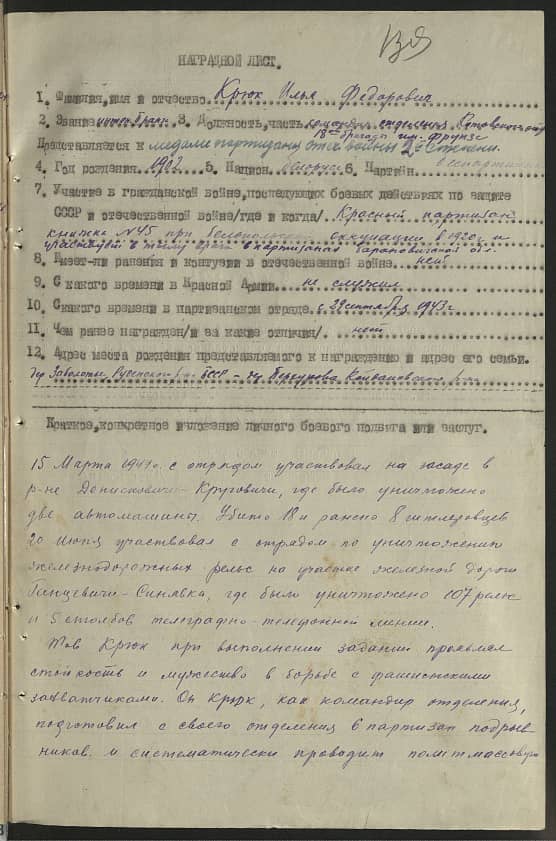 139
НАГРАДНОЙ ЛИСТ.
1. Фамилия,имя и отчество Крюк Илья Федорович
2. Звание 3. Должность,часть командир отделения
18й бригады им. Фрунзе
Представляется к медаль партизану отеч войны 2й степени.
4. Год рождения 1902 5. Национ. белорус 6. Партийн. беспартийн
7. Участие в гражданской войне,последующих боевых действиях по защите
СССР и отечественной войне/где и когда/. Красный партизан
при белопольской оккупации в 1920г и
участвует в партизанах Барановичской обл.
8. Имеет-ли ранения и контузии в отечественной войне нет
9. С какого времени в Красной Армии не служил
10. С какого времени в партизанском отряде с 29 сентября 1943г
11. Чем ранее награжден/и за какие отличия/. нет
12. Адрес места рождения представляемого к награждению и адрес его семьи.
БССР
Краткое,конкретное изложение личного боевого подвига или заслуг.
15 Марта 1944г. с отрядом участвовал на засаде в
р-не Денисковичи-Круговичи, где было уничтожено
две автомашины. Убито 18 и ранено 8 гитлеровцев
20 июня участвовал с отрядом по уничтожению
железнодорожных рельс на участке железной дороги
Ганцевичи-Синявка, где было уничтожено 107 рельс
и 5 столбов телеграфно-телефонной линии.
Тов Крюк при выполнении заданий проявлял
стойкость и мужество в борьбе с фашистскими
захватчиками. Он Крюк, как командир отделения,
подготовил с своего отделения 6 партизан подрыв-
ников. и систематически проводит политмассовую